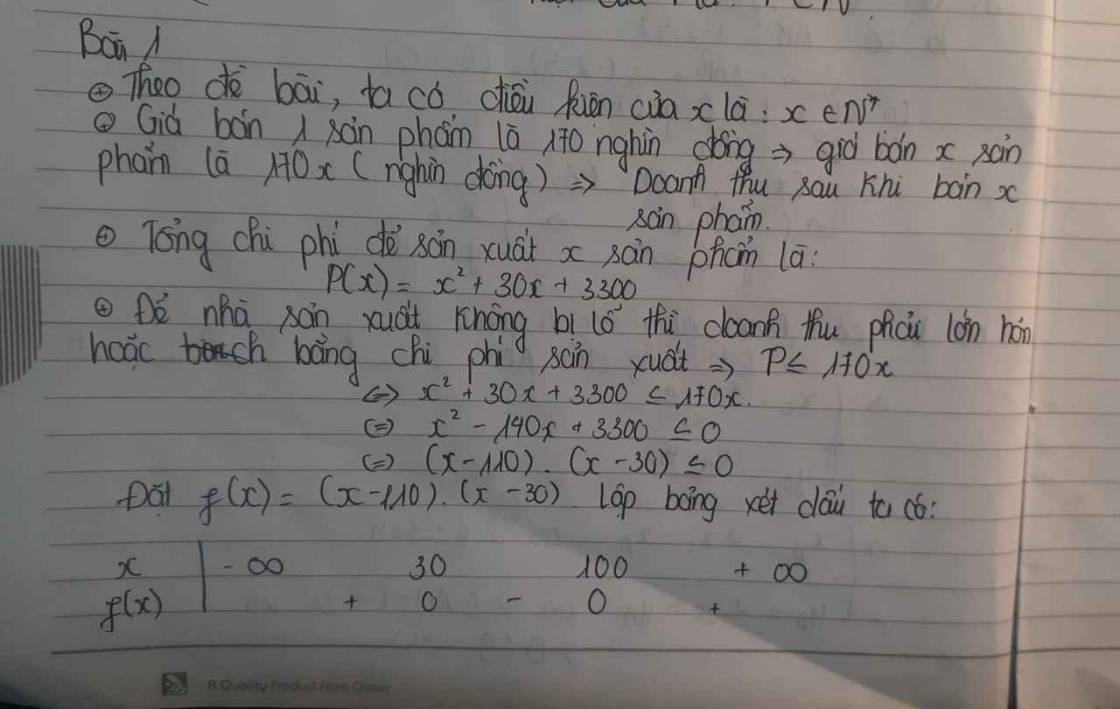 Bài 1
⊕ Theo đề bài, ta có điều kiện của x là : x ∈ N*
⊕ Giá bán 1 sản phẩm là 170 nghìn đồng ⇒ giá bán x sản
phẩm là 170x ( nghìn đồng ) ⇒ Doanh thu sau khi bán x
sản phẩm.
⊕ Tổng chi phí để sản xuất x sản phẩm là:
P(x) = x² + 30x + 3300
⊕ Để nhà sản xuất không bị lỗ thì doanh thu phải lớn hơn
hoặc bằng chi phí sản xuất ⇒ P ≤ 170x
⇔ x² + 30x + 3300 ≤ 170x.
⇔ x² - 140x + 3300 ≤ 0
⇔ (x-110) . (x-30) ≤ 0
Đặt f(x) = (x-110) . (x-30) lập bảng xét dấu ta có:
x | - ∞ 30 100 + ∞
f(x) | + 0 - 0 +
A Quality Product From Climax